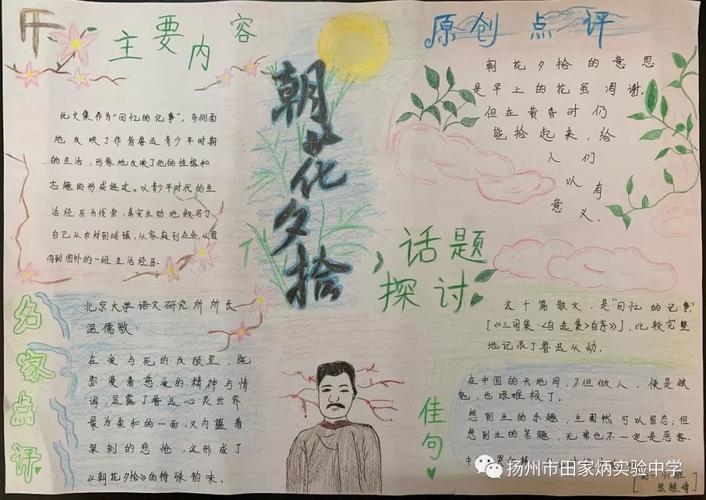 主要内容
此文集作为“回忆的记事”，多侧面
地反映了作者鲁迅青少年时期
的生活，形象地反映了他的性格和
志趣的形成经过。以青少年时代的生
活经历为线索，真实生动地叙写了
自己从农村到城镇，从家庭到社会，从国
内到国外的一组生活经历。
朝花夕拾
原创点评
朝花夕拾的意思
是早上的花虽凋谢，
但在黄昏时仍
能捡起来，给
人们
以有
意义.
话题
探讨
这十篇散文，是“回忆的记事”
[《三闲集·自选集》自序》]，比较完整
地记录了鲁迅从幼.
名家点评
北京大学语文研究所所长
温儒敏：
在爱与死的反顾里，既
弥漫着慈爱的精神与情
调，显露了鲁迅心灵世界
最为柔和的一面，又内蕴着
深刻的悲怆，交形成了
《朝花夕拾》的特殊韵味。
佳句
在中国的天地间，不但做人，便是做
鬼，也艰难极了。
想到生的乐趣，生固然可以留恋；但
想到生的苦趣，无常也不一定是恶客.
扬州市田家炳实验中学